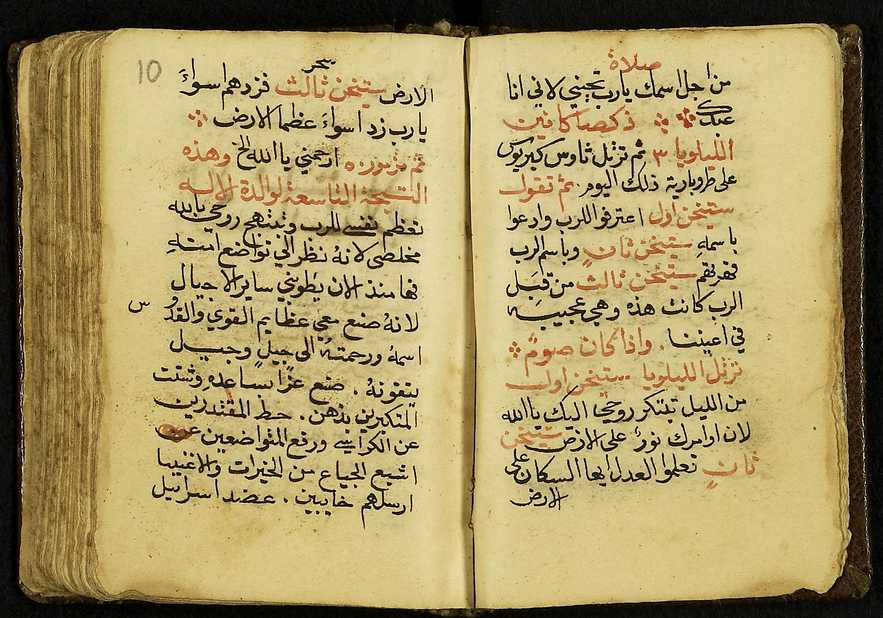 صلاة
من اجل اسمك يارب تحييني لاني انا
عبدك ذكصا كانين
الليلويا ٣ ثم ترتل ثاوس كيريوس
على طروبارية ذلك اليوم. ثم تقول
ستيخن اول اعترفوا للرب وادعوا
باسمهِ ستيخن ثانٍ وباسم الرب
قهرتهم ستيخن ثالث من قِبَل
الرب كانت هذه وهي عجيبه
في اعيننا. واذا كان صومٌ
ترتل الليلويا ستيخن اول
من الليل تبتكر روحي اليك يا الله
لان اوامرك نورٌ على الارض ستيخن
ثانٍ تعلموا العدل ايها السكان على
الارض
10
سحر
الارض ستيخن ثالث فزدهم اسواءً
يارب زد اسواءَ عظما الارض
ثم مزمور ٥٠ ارحمني يا الله الخ وهذه
التسبحة التاسعة لوالدة الاله
تعظم نفسي للرب وتبتهج روحي بالله
مخلصي لانهُ نظر الى تواضع امتهِ
فها منذ الان يطوبني ساير الاجيال
لانهُ صنع معي عظايم القوي والقدُ س
اسمهُ ورحمتهُ الى جيلٍ وجيل
يتقونهُ. صنع عزًا بساعده وشتت
المتكبرين بذهن. حط المقتدرين
عن الكراسي ورفع المتواضعين
اشبع الجياع من الخيرات والاغنيا
ارسلهم خايبين. عضد اسرائيل